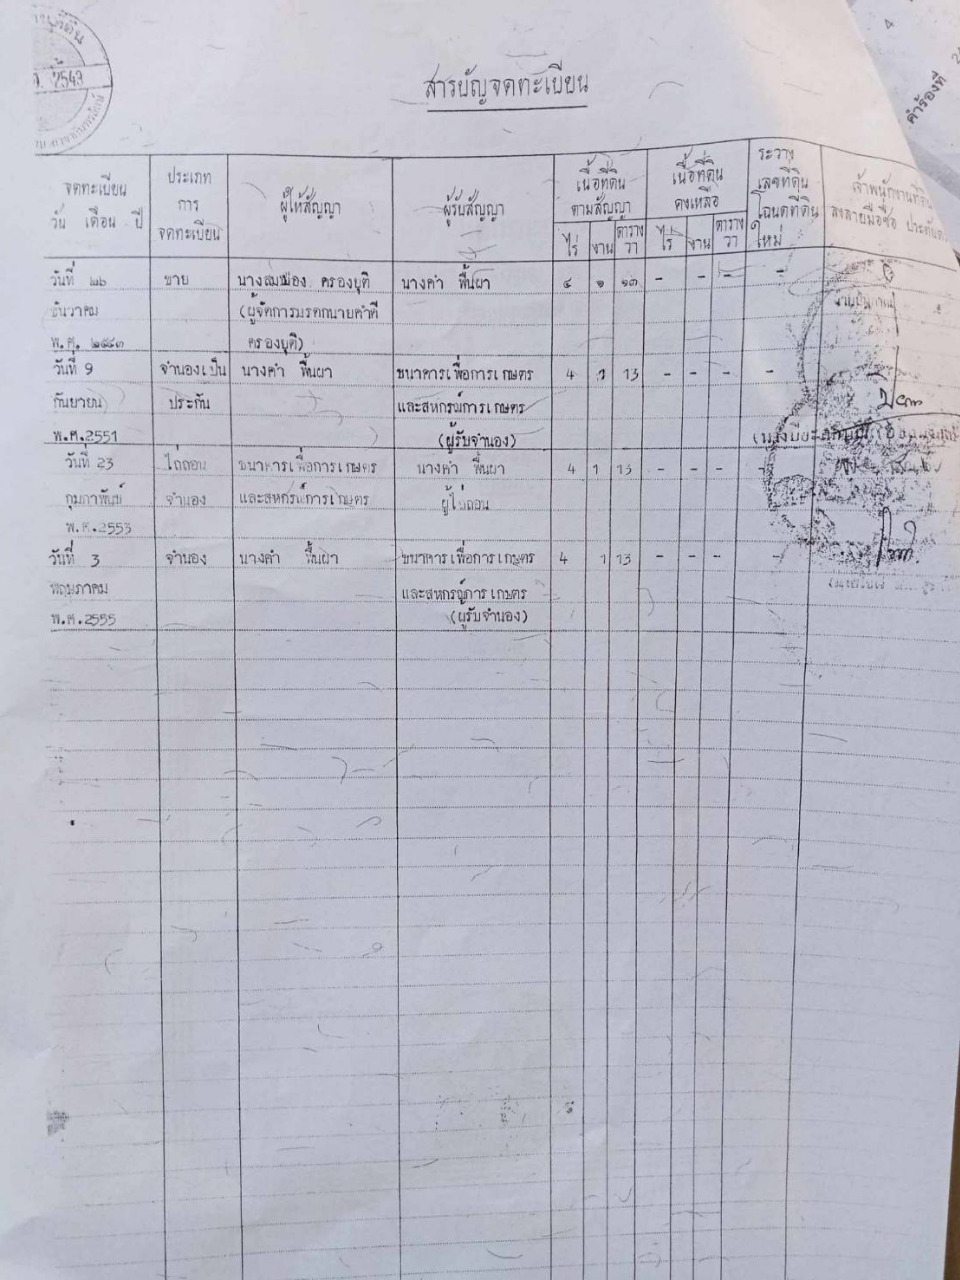 2543
คำร้องที่
สารบัญจดทะเบียน
จดทะเบียน
วัน เดือน ปี
ประเภท
การ
จดทะเบียน
ผู้ให้สัญญา
ผู้รับสัญญา
เนื้อที่ดิน
ตามสัญญา
ไร่ งาน ตาราง
วา
เนื้อที่ดิน
คงเหลือ
ไร่ งาน ตาราง
วา
ระวาง
เลขที่ดิน
โฉนดที่ดิน
ใหม่
เจ้าพนักงานที่ดิน
ลงลายมือชื่อ ประทับ
วันที่ ๒๖ ขาย นางสมปอง ครองยุติ นางคำ พื้นผา ๔ ๑ ๑๓ - - - -
ธันวาคม (ผู้จัดการมรดกนายคำดี
พ.ศ. ๒๕๔๓ ครองยุติ)
วันที่ 9 จำนองเป็น นางคำ พื้นผา ธนาคารเพื่อการเกษตร 4 1 13 - - - -
กันยายน ประกัน และสหกรณ์การเกษตร
พ.ศ.2551 (ผู้รับจำนอง)
วันที่ 23 ไถ่ถอน ธนาคารเพื่อการเกษตร นางคำ พื้นผา 4 1 13 - - - -
กุมภาพันธ์ จำนอง และสหกรณ์การเกษตร ผู้ไถ่ถอน
พ.ศ.2553
วันที่ 3 จำนอง นางคำ พื้นผา ธนาคารเพื่อการเกษตร 4 1 13 - - - -
พฤษภาคม และสหกรณ์การเกษตร
พ.ศ.2555 (ผู้รับจำนอง)